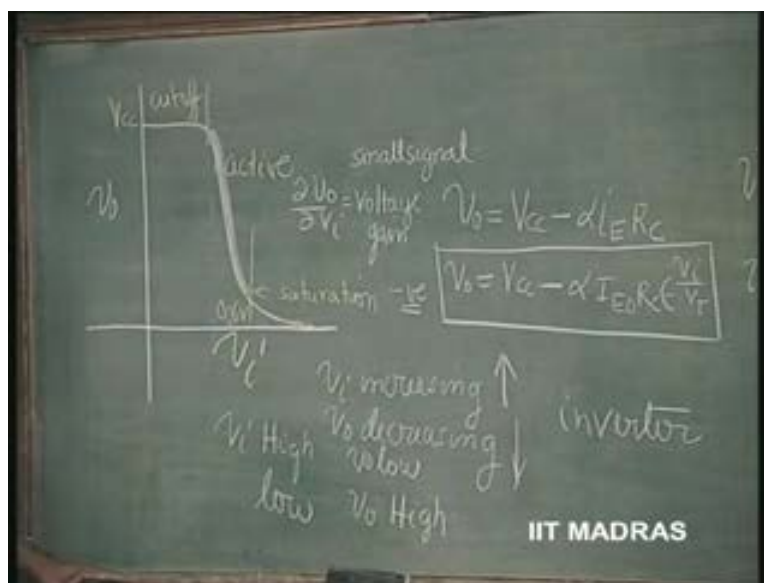 cutoff
Vcc
active
small signal
∂v₀/∂vᵢ = voltage gain
v₀
v₀ = Vcc - αi_E R_C
saturation -ve
v₀ = Vcc - αI_E0 R_C ε^(vᵢ/v_T)
vᵢ
vᵢ increasing ↑
v₀ decreasing ↓
invertor
vᵢ High v₀ low
low v₀ High
IIT MADRAS